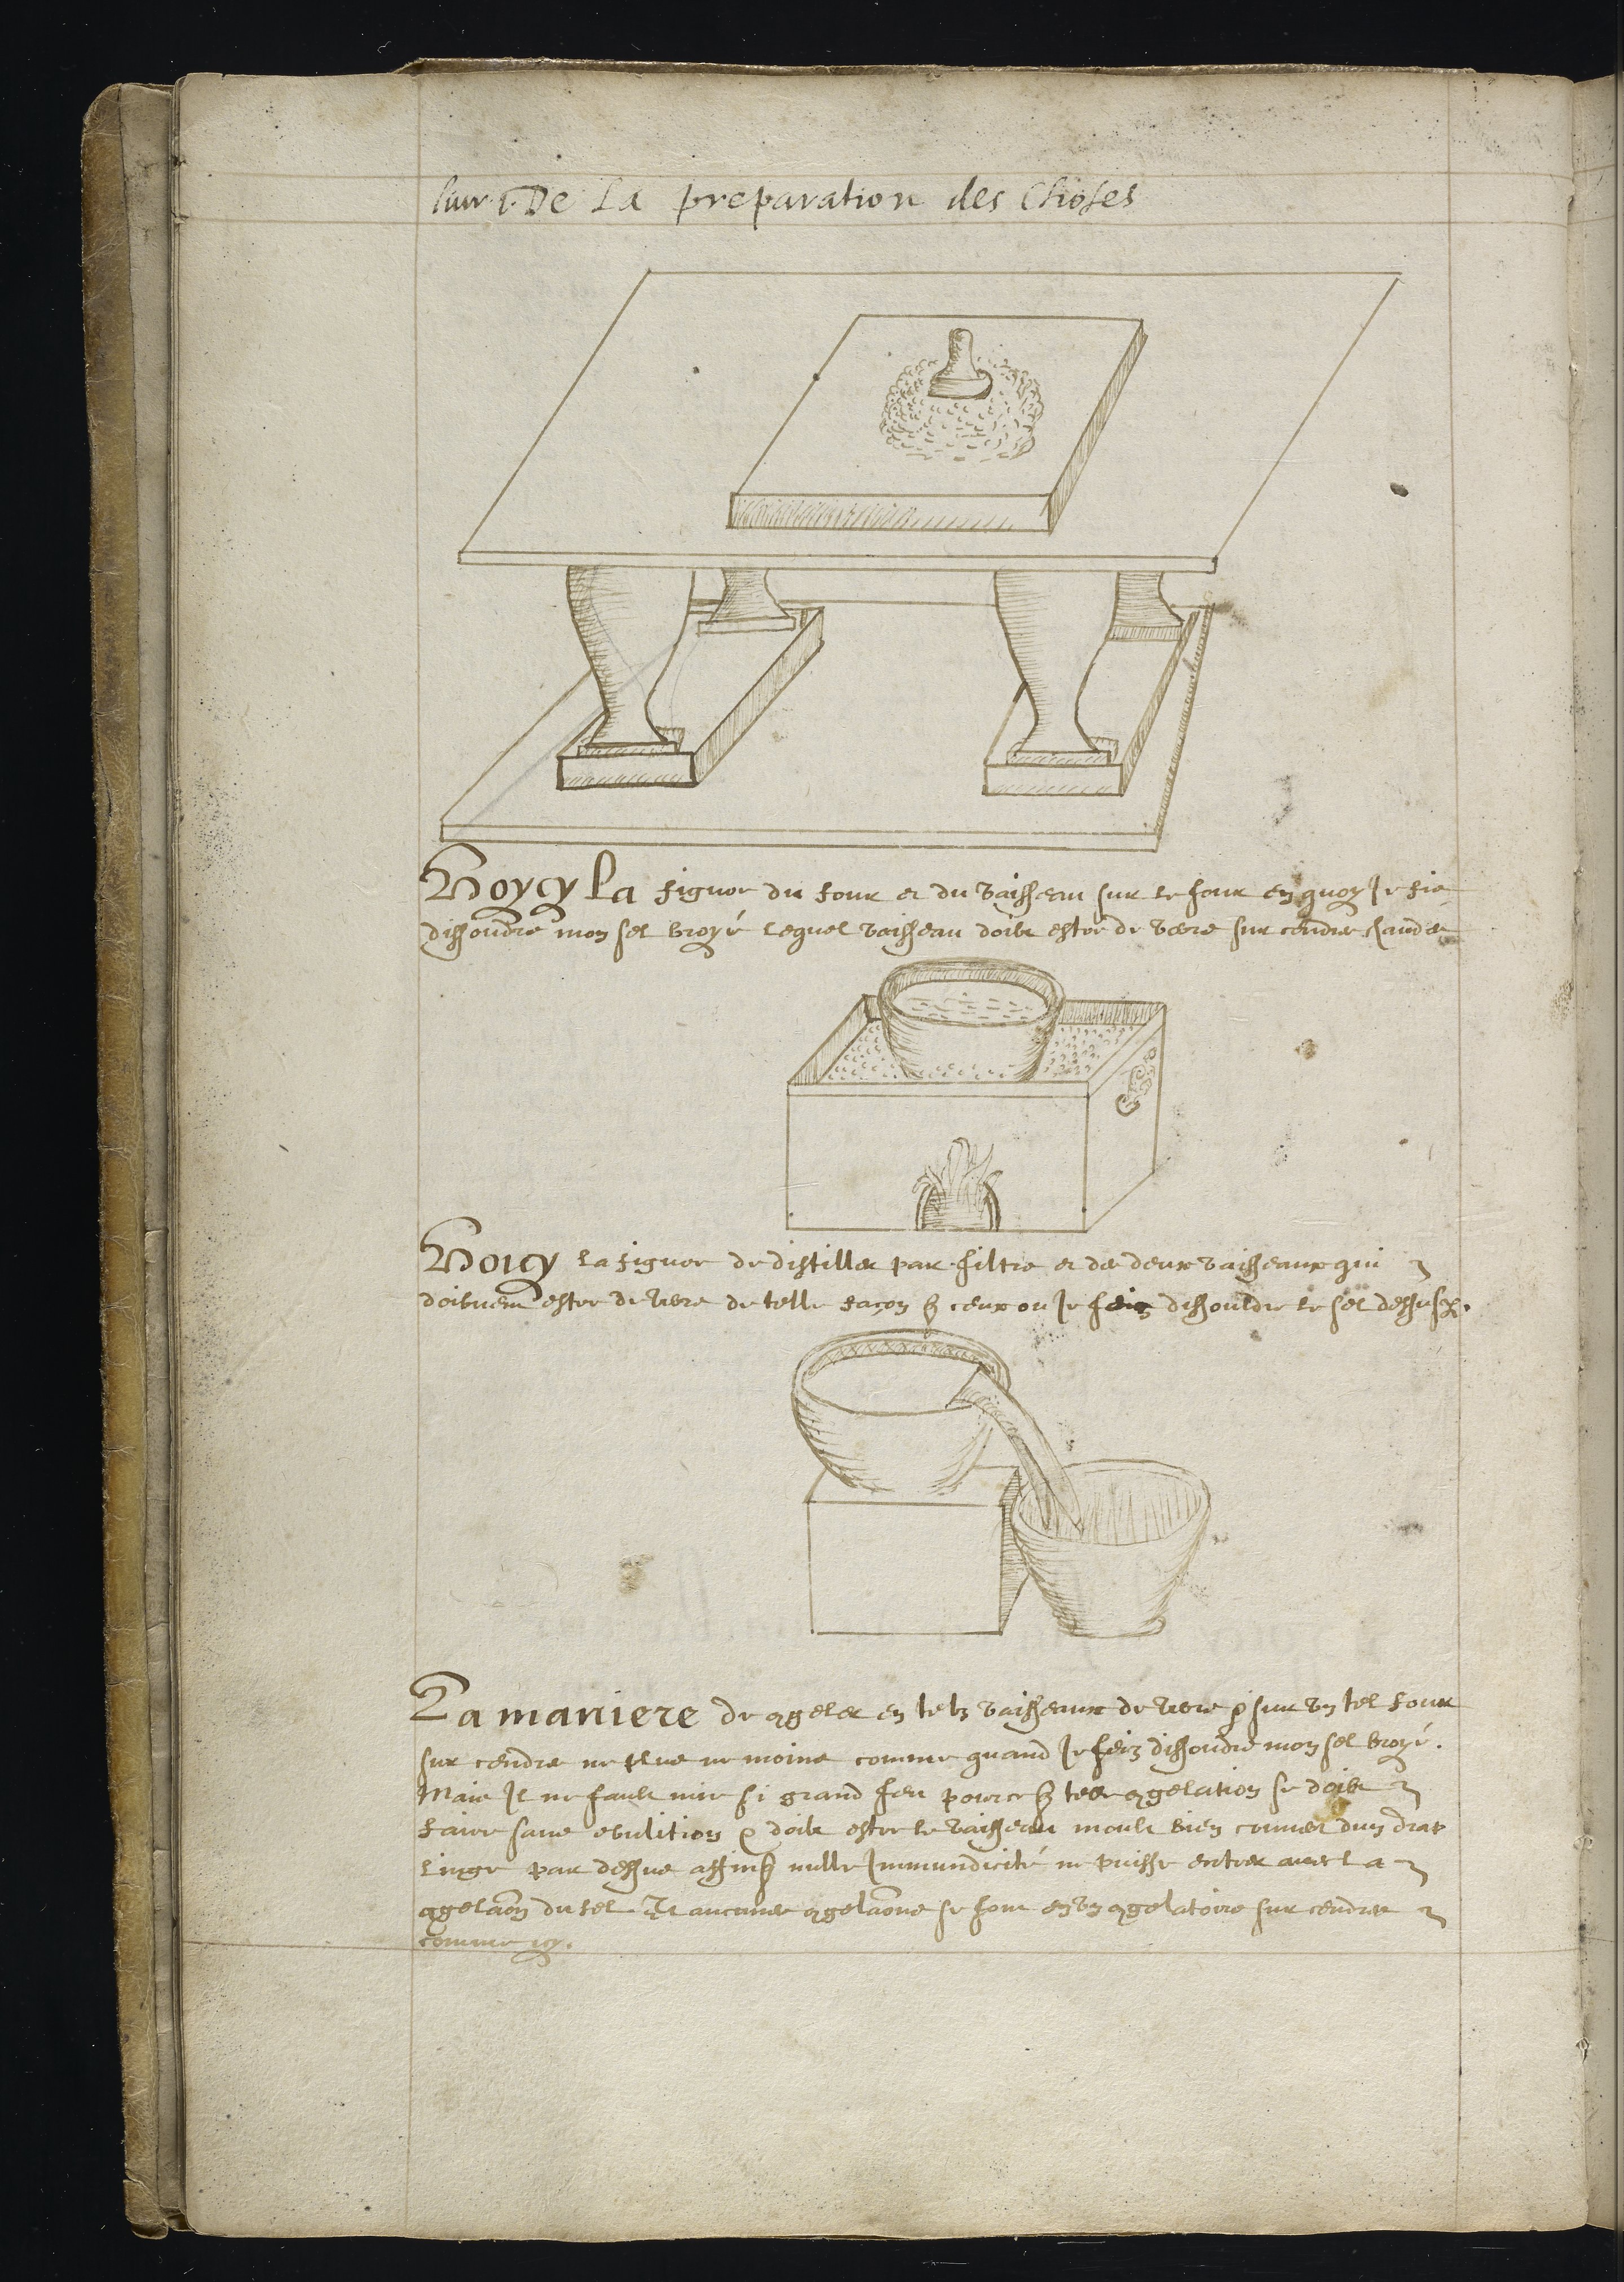 liur. 1. De La preparation des Choses
Voycy La figure du four et du vaisseau sur le four en quoy Je fis
dissoudre mon sel broyé lequel vaisseau doibt estre de verre sur cendres chaudes
Voicy la figure de distiller par filtre et des deux vaisseaux qui
doibuent estre de verre de telle façon q̃ ceux ou Je feiz dissouldre le sel dessusd.
La maniere de ꝯgeler en telz vaisseaux de verre & sur vn tel four
sur cendres ne plus ne moins comme quand Je feiz dissoudre mon sel broyé.
Mais Il ne fault mie si grand feu pource q̃ telle ꝯgelation se doibt
faire sans ebulition & doibt estre le vaisseau moult bien couuert dun drap
linge par dessus affin q̃ nulle Immundicité ne puisse entrer auec la
ꝯgelaõn du sel Et aucunes ꝯgelaõns se font en vn ꝯgelatoire sur cendres
comme icy.